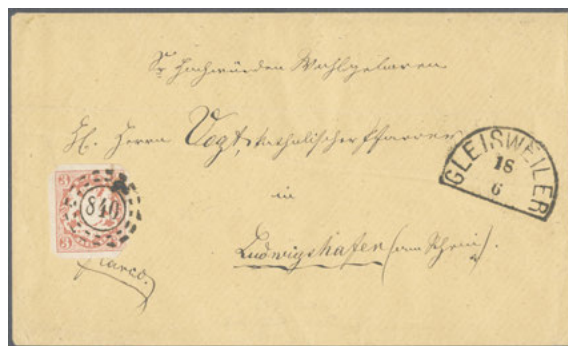 Sr Hochwürden Wohlgeboren
H. Herrn Vogt, katholischer Pfarrer
in
Ludwigshafen (am Rhein).
GLEISWEILER
18
6
3
840
3
franco.